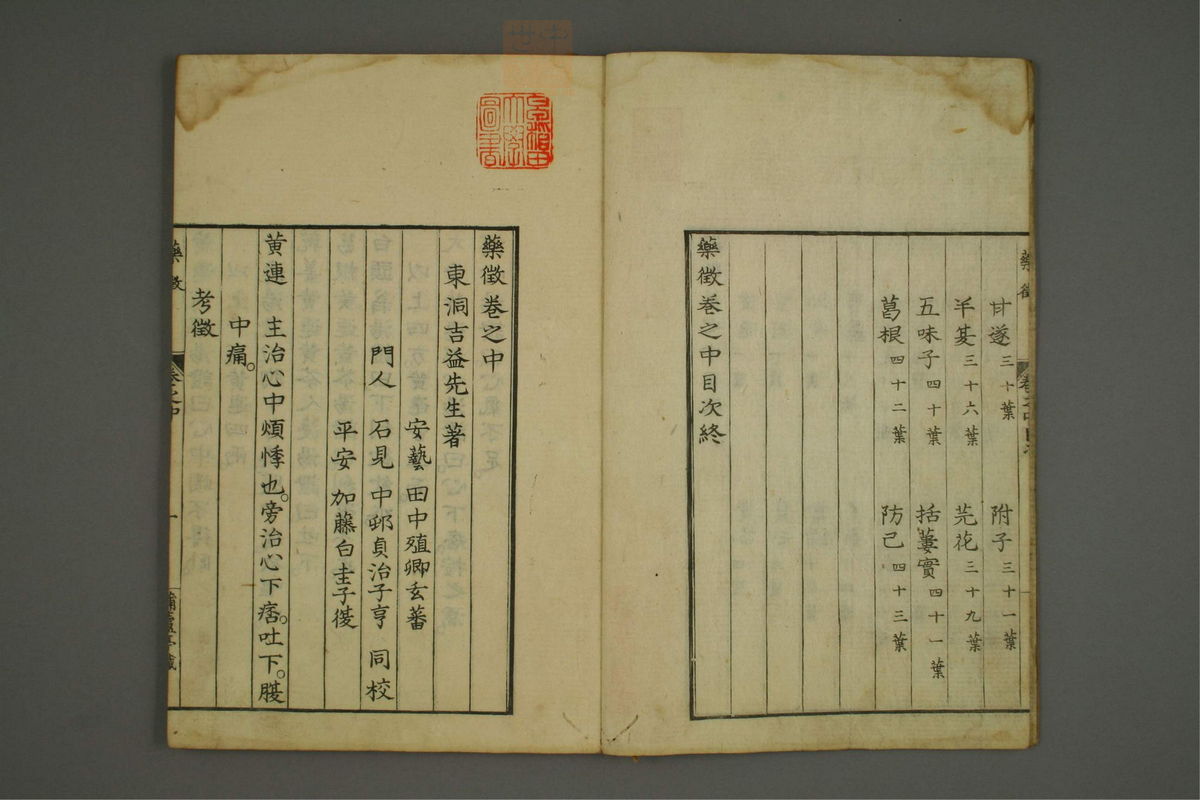 藥徵
甘遂 三十葉 附子 三十一葉
半夏 三十六葉 芫花 三十九葉
五味子 四十葉 括蔞實 四十一葉
葛根 四十二葉 防己 四十三葉
藥徵卷之中目次終
藥徵卷之中
東洞吉益先生著
安藝 田中殖卿玄蕃
門人 石見 中邨貞治子亨 同校
平安 加藤白圭子復
黃連 主治心中煩悸也。旁治心下痞。吐下。腹
中痛。
考徵
藥徵 卷之中 一